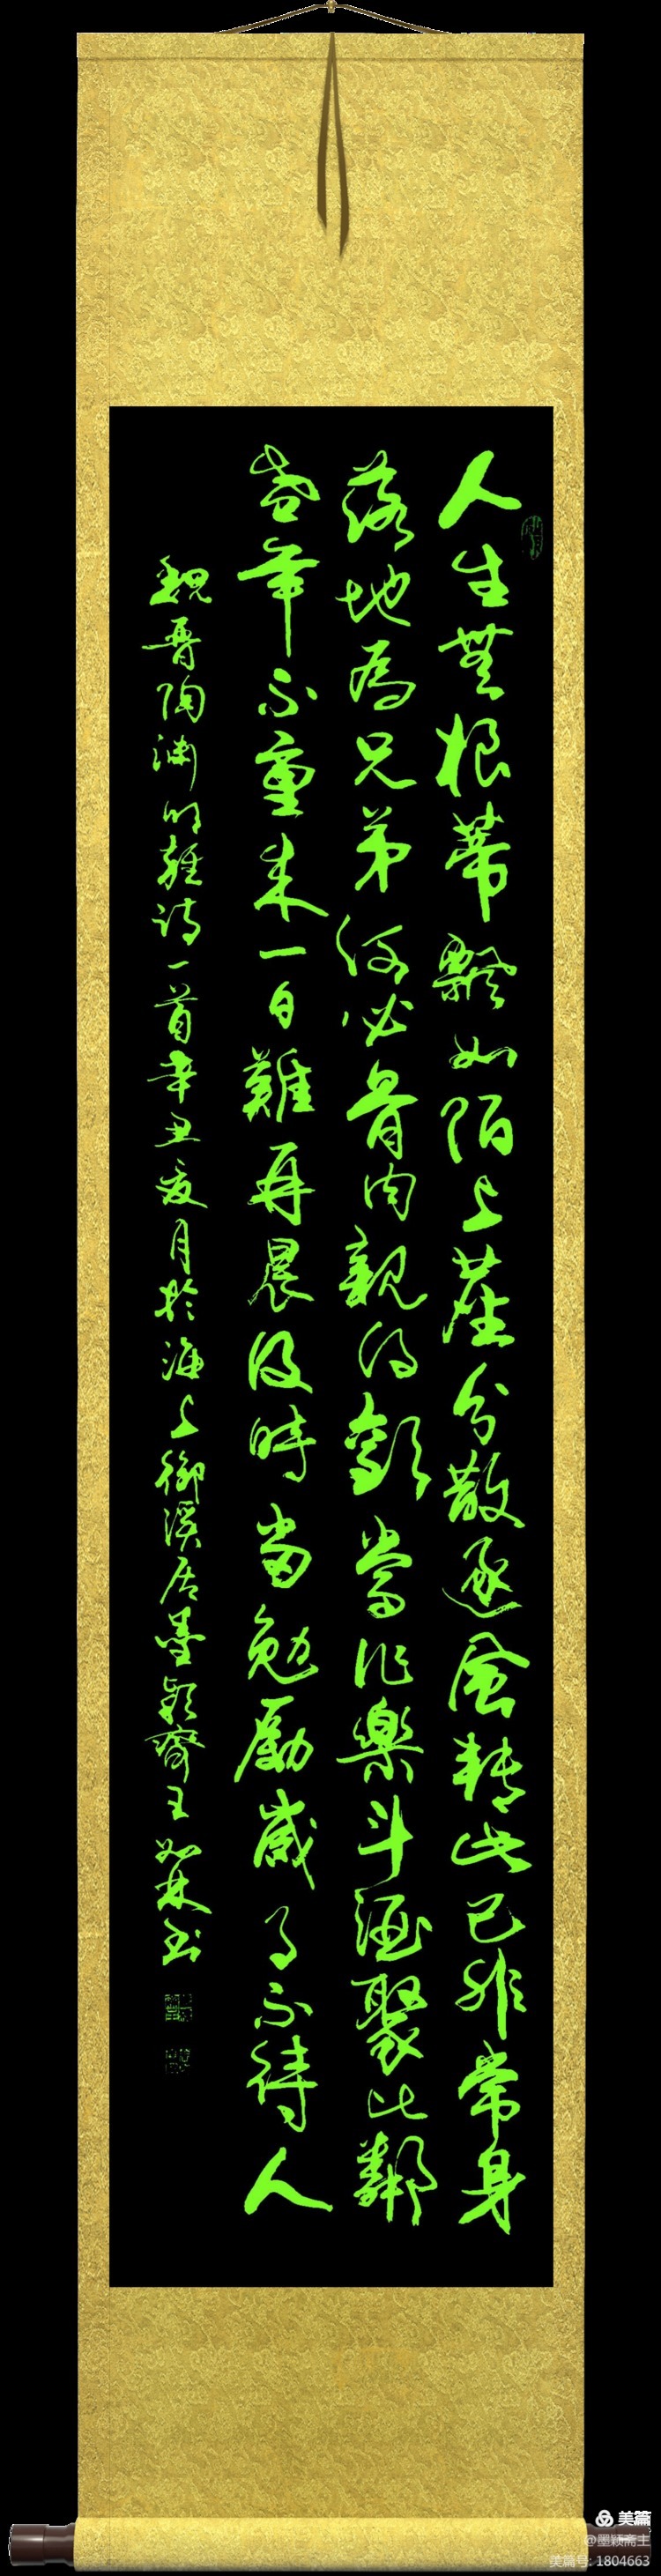 人生無根蒂飄如陌上塵分散逐風轉此已非常身
落地為兄弟何必骨肉親得歡當作樂斗酒聚比鄰
盛年不重來一日難再晨及時當勉勵歲月不待人
魏晋陶渊明雜詩一首辛丑夏月於海上御溪居墨穎齋王如林书
美篇
@墨颖斋主
美篇号: 1804663